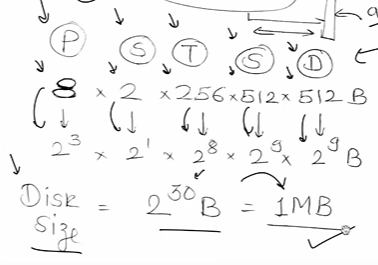 P S T S D
8 × 2 × 256 × 512 × 512 B
2³ × 2¹ × 2⁸ × 2⁹ × 2⁹ B
Disk Size = 2³⁰ B = 1MB